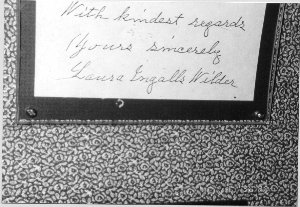 With kindest regards
Yours sincerely
Laura Ingalls Wilder.